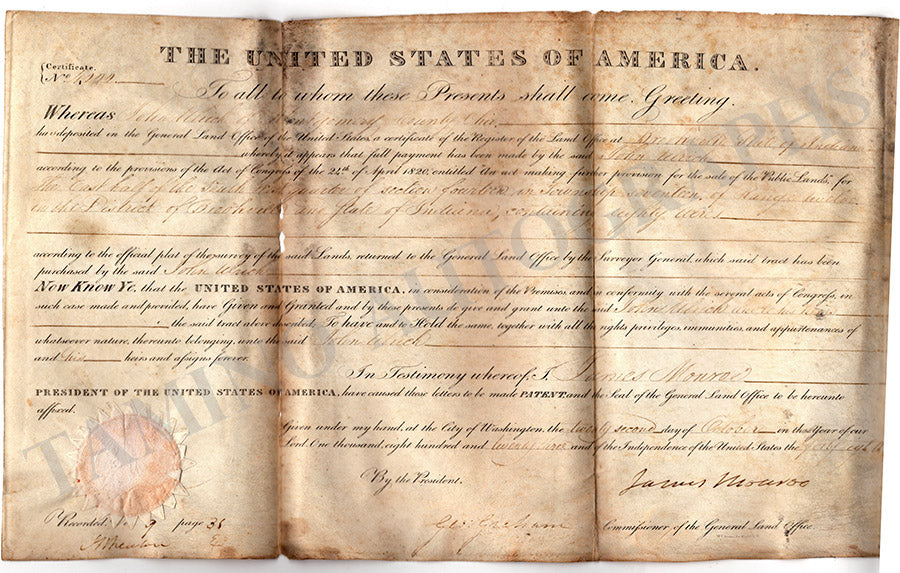 THE UNITED STATES OF AMERICA.
Certificate.
No.
To all to whom these Presents shall come, Greeting.
Whereas John Ulrich of Montgomery County Ohio
ha deposited in the General Land Office of the United States, a certificate of the Register of the Land Office at State of Indiana
whereby it appears that full payment has been made by the said John Ulrich
according to the provisions of the Act of Congress of the 24th of April 1820, entitled An act making further provision for the sale of the Public Lands, for
the East half of the South quarter of section fourteen in Township seventeen, of Range
in the District of and State of Indiana, containing eighty acres
according to the official plat of the survey of the said Lands, returned to the General Land Office by the Surveyor General, which said tract has been
purchased by the said John Ulrich
Now Know Ye, that the UNITED STATES OF AMERICA, in consideration of the Premises, and in conformity with the several acts of Congress, in
such case made and provided, have Given and Granted and by these presents do give and grant unto the said John Ulrich and his heirs
the said tract above described: To have and to Hold the same, together with all the rights privileges, immunities, and appurtenances of
whatsoever nature, thereunto belonging, unto the said John Ulrich
and his heirs and assigns forever.
In Testimony whereof, I, James Monroe
PRESIDENT OF THE UNITED STATES OF AMERICA, have caused these letters to be made PATENT, and the Seal of the General Land Office to be hereunto
affixed.
Given under my hand, at the City of Washington, the twenty second day of October in the Year of our
Lord One thousand, eight hundred and twenty and of the Independence of the United States the
By the President.
James Monroe
Recorded 9 page 38
Geo: Graham Commissioner of the General Land Office.
TAMINO AUTOGRAPHS